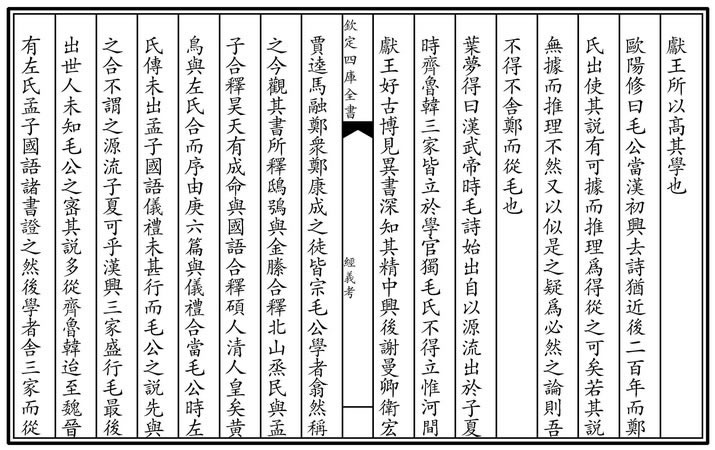 獻王所以髙其學也
歐陽修曰毛公當漢初興去詩猶近後二百年而鄭
氏出使其說有可據而推理爲得從之可矣若其說
無據而推理不然又以似是之疑爲必然之論則吾
不得不舍鄭而從毛也
葉夢得曰漢武帝時毛詩始出自以源流出於子夏
時齊魯韓三家皆立於學官獨毛氏不得立惟河間
獻王好古博見異書深知其精中興後謝曼卿衛宏
欽定四庫全書
經義考
賈逵馬融鄭衆鄭康成之徒皆宗毛公學者翕然稱
之今觀其書所釋鴟鴞與金縢合釋北山烝民與孟
子合釋昊天有成命與國語合釋碩人清人皇矣黄
鳥與左氏合而序由庚六篇與儀禮合當毛公時左
氏傳未出孟子國語儀禮未甚行而毛公之說先與
之合不謂之源流子夏可乎漢興三家盛行毛最後
出世人未知毛公之密其說多從齊魯韓迨至魏晉
有左氏孟子國語諸書證之然後學者舍三家而從